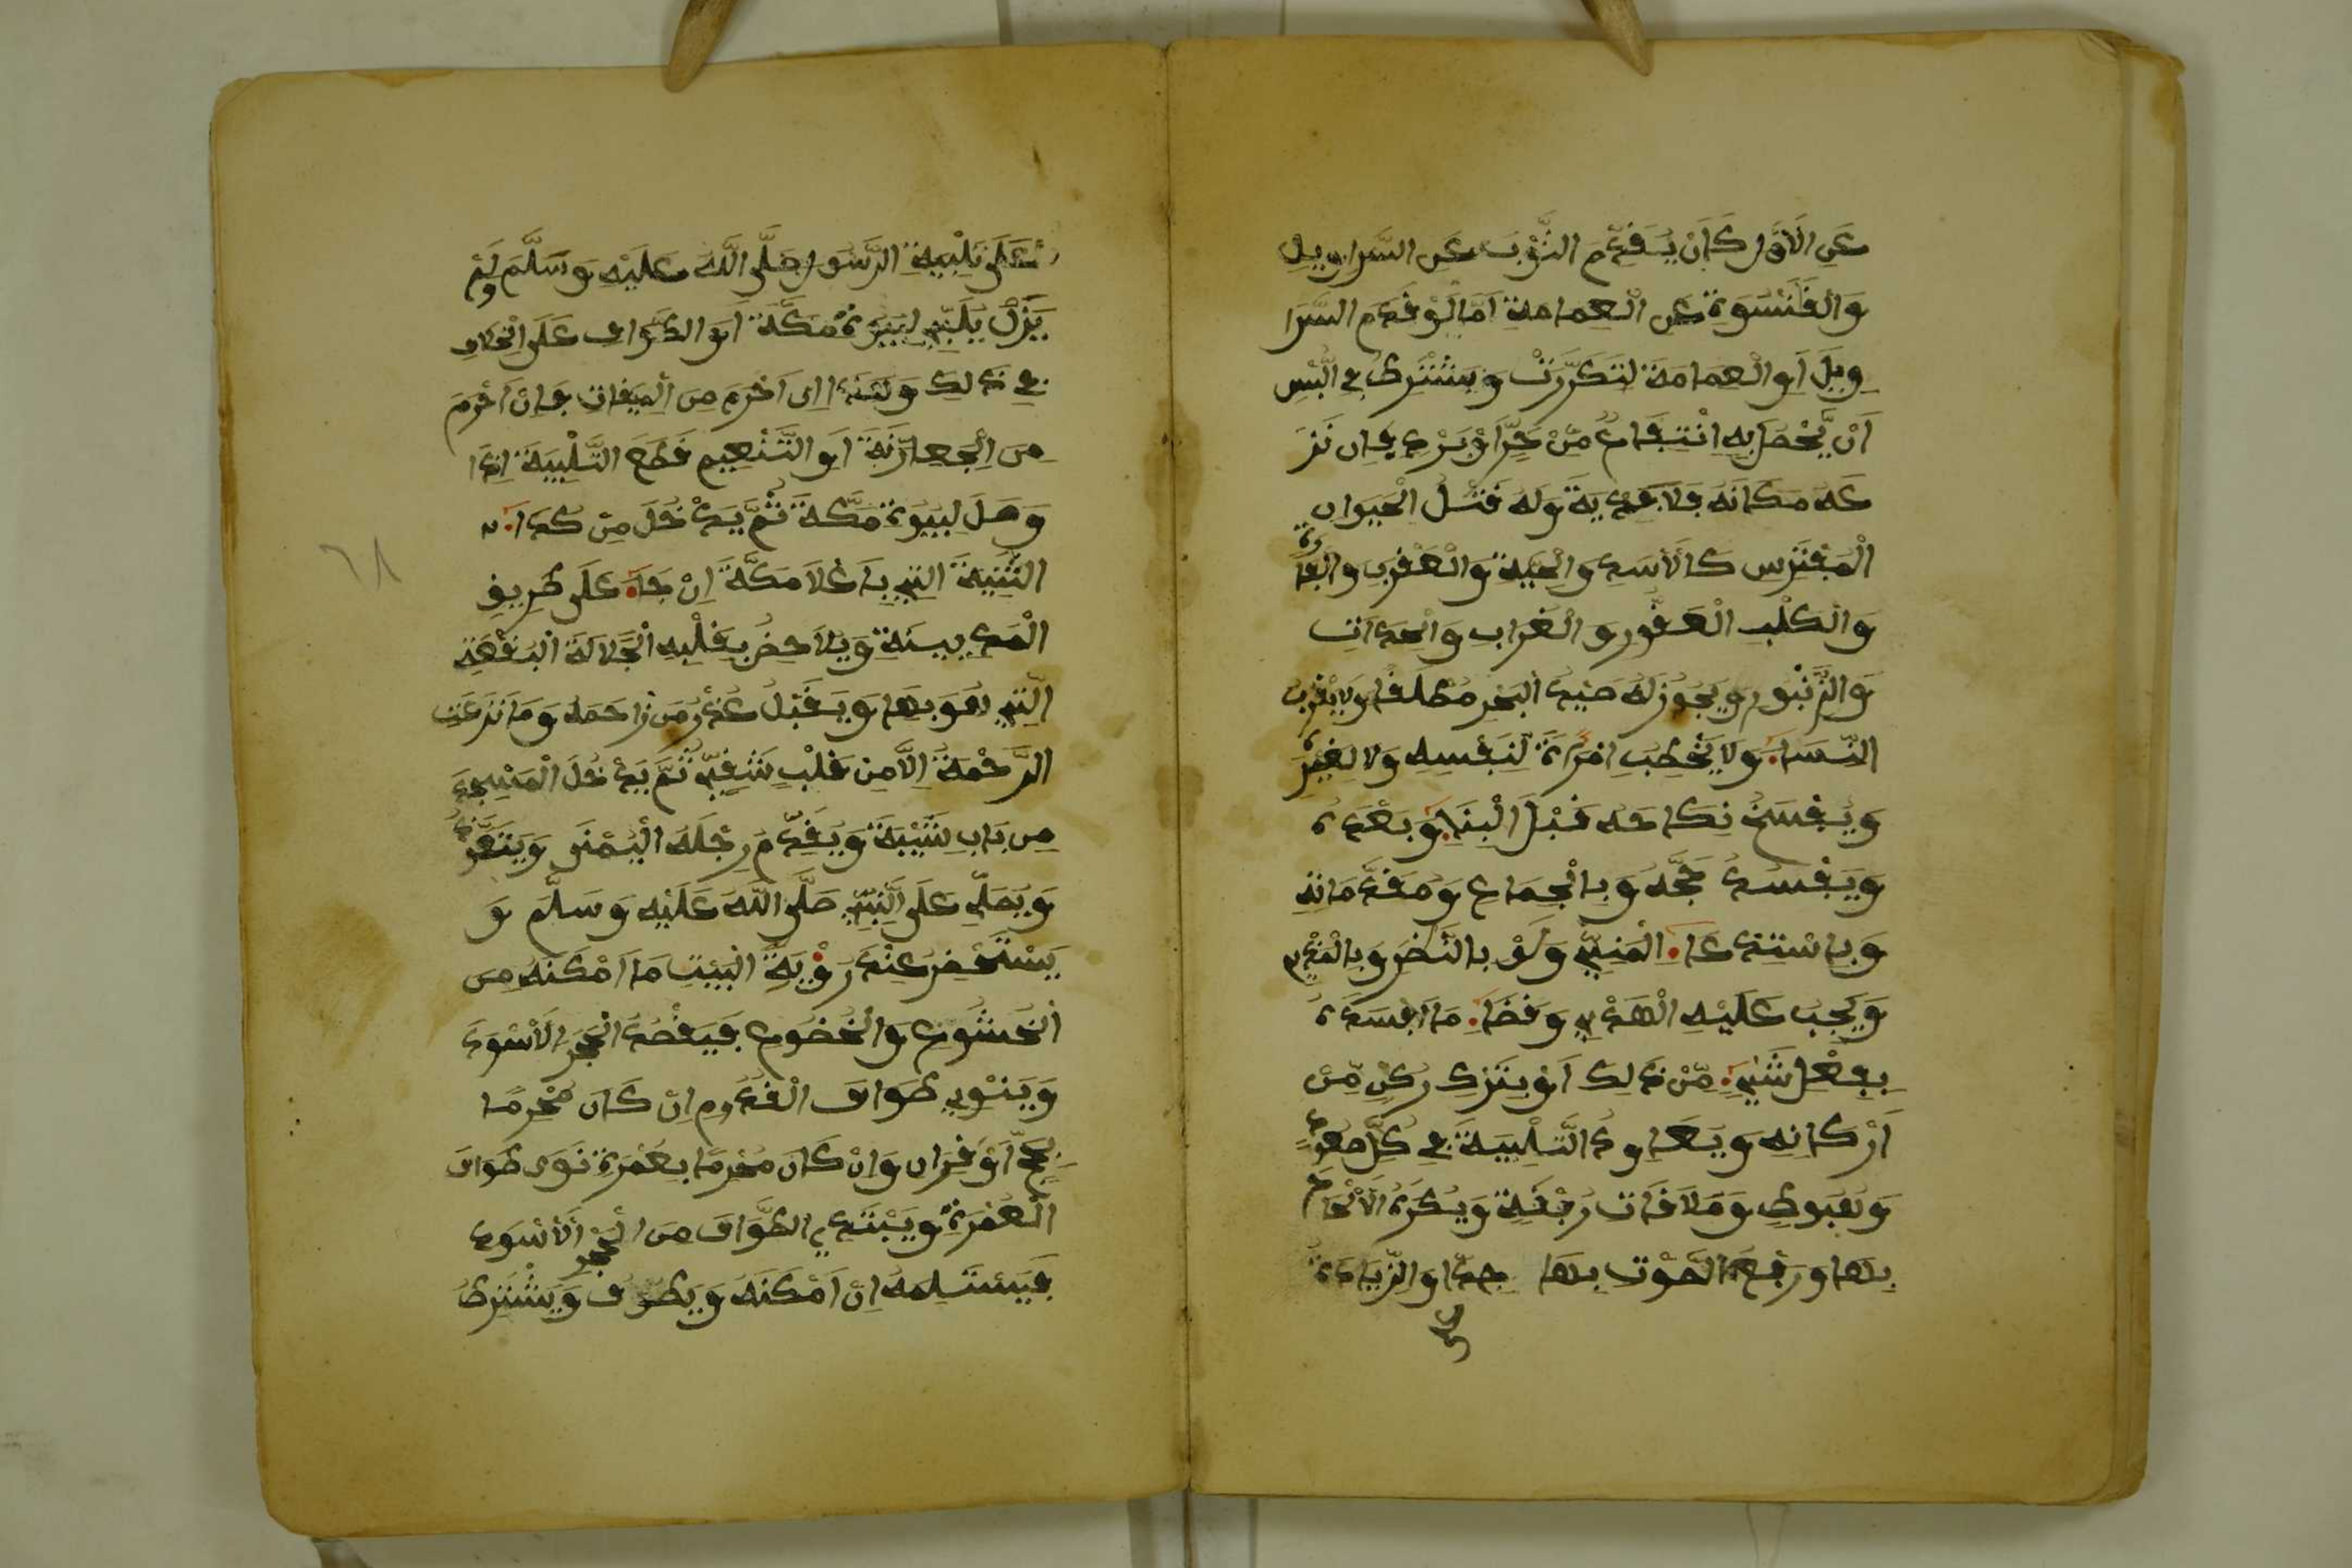 عَنِ الَاوَّلِ كَاَنْ يُّقَدِّمَ الثَّوْبَ عَنِ السَّراويلِ
وَالْقَلَنْسُوَةِ عَنِ الْعِمامةِ اَمَّا لَوْ قَدَّمَ السَّرَا
وِيلَ اَوِ الْعِمَامَةَ لتَكَرَّرَتْ وَيُشْتَرطُ في اللُّبْسِ
اَنْ يَّحْصُلَ بِهِ انْتِفَاعٌ مِّنْ حَرٍّ اَوْ بَرْدٍ فإن نَزَ
عَهُ مَكَانَهُ فَلَا فِدْيَةَ وَلَهُ قَتْلُ الْحَيَوانِ
الْمُفْتَرِس كَالَاسَدِ والحَيَّةِ وَالْعَقْرَبِ والْفَارَةِ
وَالْكَلْبِ الْعَقُورِ وَالْغُرَابِ وَالْحِدَاتِ
وَالزُّنْبُورِ وَيَجُوزُ لَهُ صَيْدُ الْبَحْرِ مُطْلَقًا وَلَا يَقْرُبُ
النِّسَاءَ وَلَا يَخْطِبِ امْرَأَةً لِّنَفْسِهِ وَلَا لِغَيْرِهِ
وَيُفْسَخُ نِكَاحُهُ قَبْلَ الْبِنَاءِ وَبَعْدَهُ
وَيَفْسُدُ حَجُّهُ وَبِالْجِمَاعِ وَمُقَدَّمَاتِهِ
وَبِاسْتِدْعَاءِ الْمَنِيِّ وَلَوْ بِالنَّظَرِ وَبِالْمَذْيِ
وَيَجِبُ عَلَيْهِ الْهَدْيُ وَقَضَاءُ مَا اَفْسَدَهُ
بِفِعْلِ شَيْءٍ مِّنْ ذَلِكَ اَوْ بِتَرْكِ رُكْنٍ مِّنْ
اَرْكَانِهِ وَيُعَاوِدُ التَّلْبِيَةَ في كُلِّ صُعُودٍ
وَهُبُوطٍ وَمُلَاقَاتِ رُفْقَةٍ وَيُكْرَهُ الَالْحَاحُ
بِهَا وَرَفْعُ الصَّوْتِ بِهَا جِدًّا وَالزِّيَادَةُ
عَلَى تَلْبِيَةِ الرَّسُولِ صَلَّى اللَّهُ عَلَيْهِ وَسَلَّمَ وَلَمْ
يَزَلْ يُلَبِّي لِبُيُوتِ مَكَّةَ اَوِ الطَّوافِ عَلَى الْخِلافِ
في ذَلِكَ وَهَذَا اِن اَحْرَمَ مِنَ الْمِيقاتِ فَاِنْ اَحْرَمَ
مِنَ الْجِعِرَّانَةِ اَوِ التَّنْعِيمِ قَطَعَ التَّلْبِيَةَ اِذَا
وَصَلَ لِبُيُوتِ مَكَّةَ ثُمَّ يَدْخُلُ مِنْ كَدَاءٍ
الثَّنِيَّةِ التِي بِاَعْلَا مَكَّةَ اِنْ جَاءَ عَلَى طَرِيقِ
الْمَدِينَةِ وَيُلَاحِظُ بِقَلْبِهِ الْجَلَالَةَ الْبُقْعَةِ
الَّتِي هُوَ بِهَا وَيَقْبَلُ عُذْرَ مَن زَاحَمَهُ وَمَا نُزِعَتِ
الرَّحْمَةُ اِلَّا مِنْ قَلْبِ شَقِيٍّ ثُمَّ يَدْخُلَ الْمَسْجِدَ
مِن بَابِ شَيْبَةَ وَيُقَدِّمُ رِجْلَهُ الْيُمْنَى وَيَتَعَوَّذُ
وَيُصَلِّي عَلَى النَّبِيِّ صَلَّى اللَّهُ عَلَيْهِ وَسَلَّمَ وَ
يَسْتَحْضِرُ عِنْدَ رُؤْيَةِ الْبَيْتِ مَا اَمْكَنَهُ مِنَ
الْخُشُوعِ وَالْخُضُوعِ فَيَقْصُدُ الْحَجَرَ الَاسْوَدَ
وَيَنْوِي طَوَافَ الْقُدُومِ اِنْ كَانَ مُحْرِمًا
بِحَجٍّ اَوْ قِرَانٍ وَاِنْ كَانَ مُحْرِمًا بِعُمْرَةٍ نَوَى طَوَافَ
الْعُمْرَةِ وَيَبْتَدِي الطَّوَافَ مِنَ الْحَجَرِ الَاسْوَدِ
فَيَسْتَلِمُهُ اِنْ اَمْكَنَهُ وَيَطُوفُ وَيُشْتَرطُ
٦٨